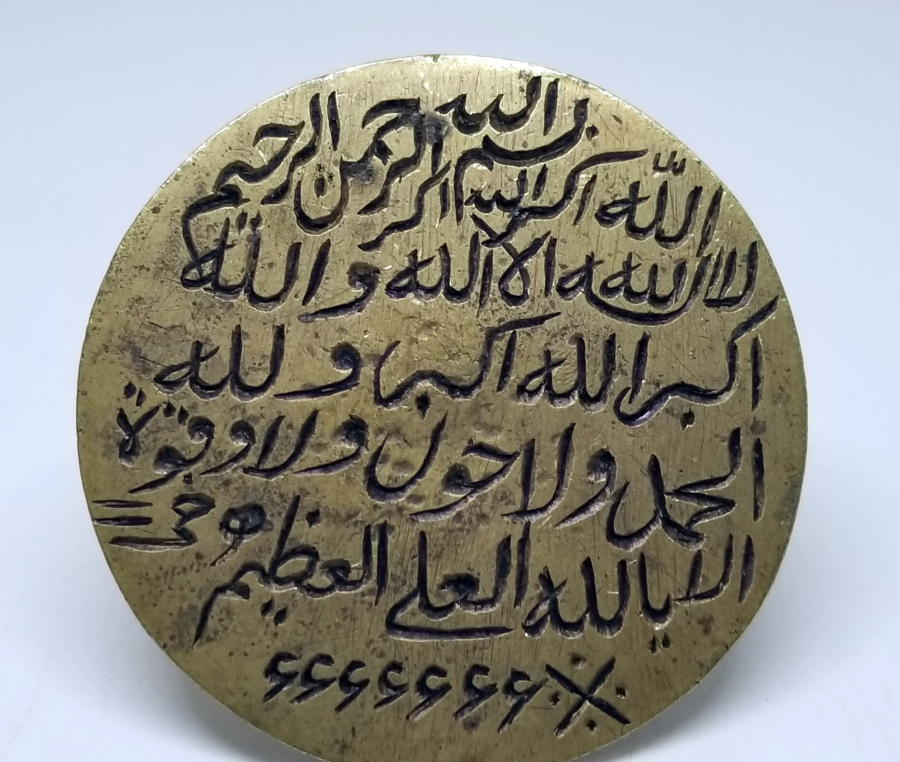 بسم الله الرحمن الرحيم
الله اكبر الله اكبر
لا اله الا الله والله
اكبر الله اكبر و لله
الحمد ولا حول ولا وقوة
الا يا لله العلي العظيم